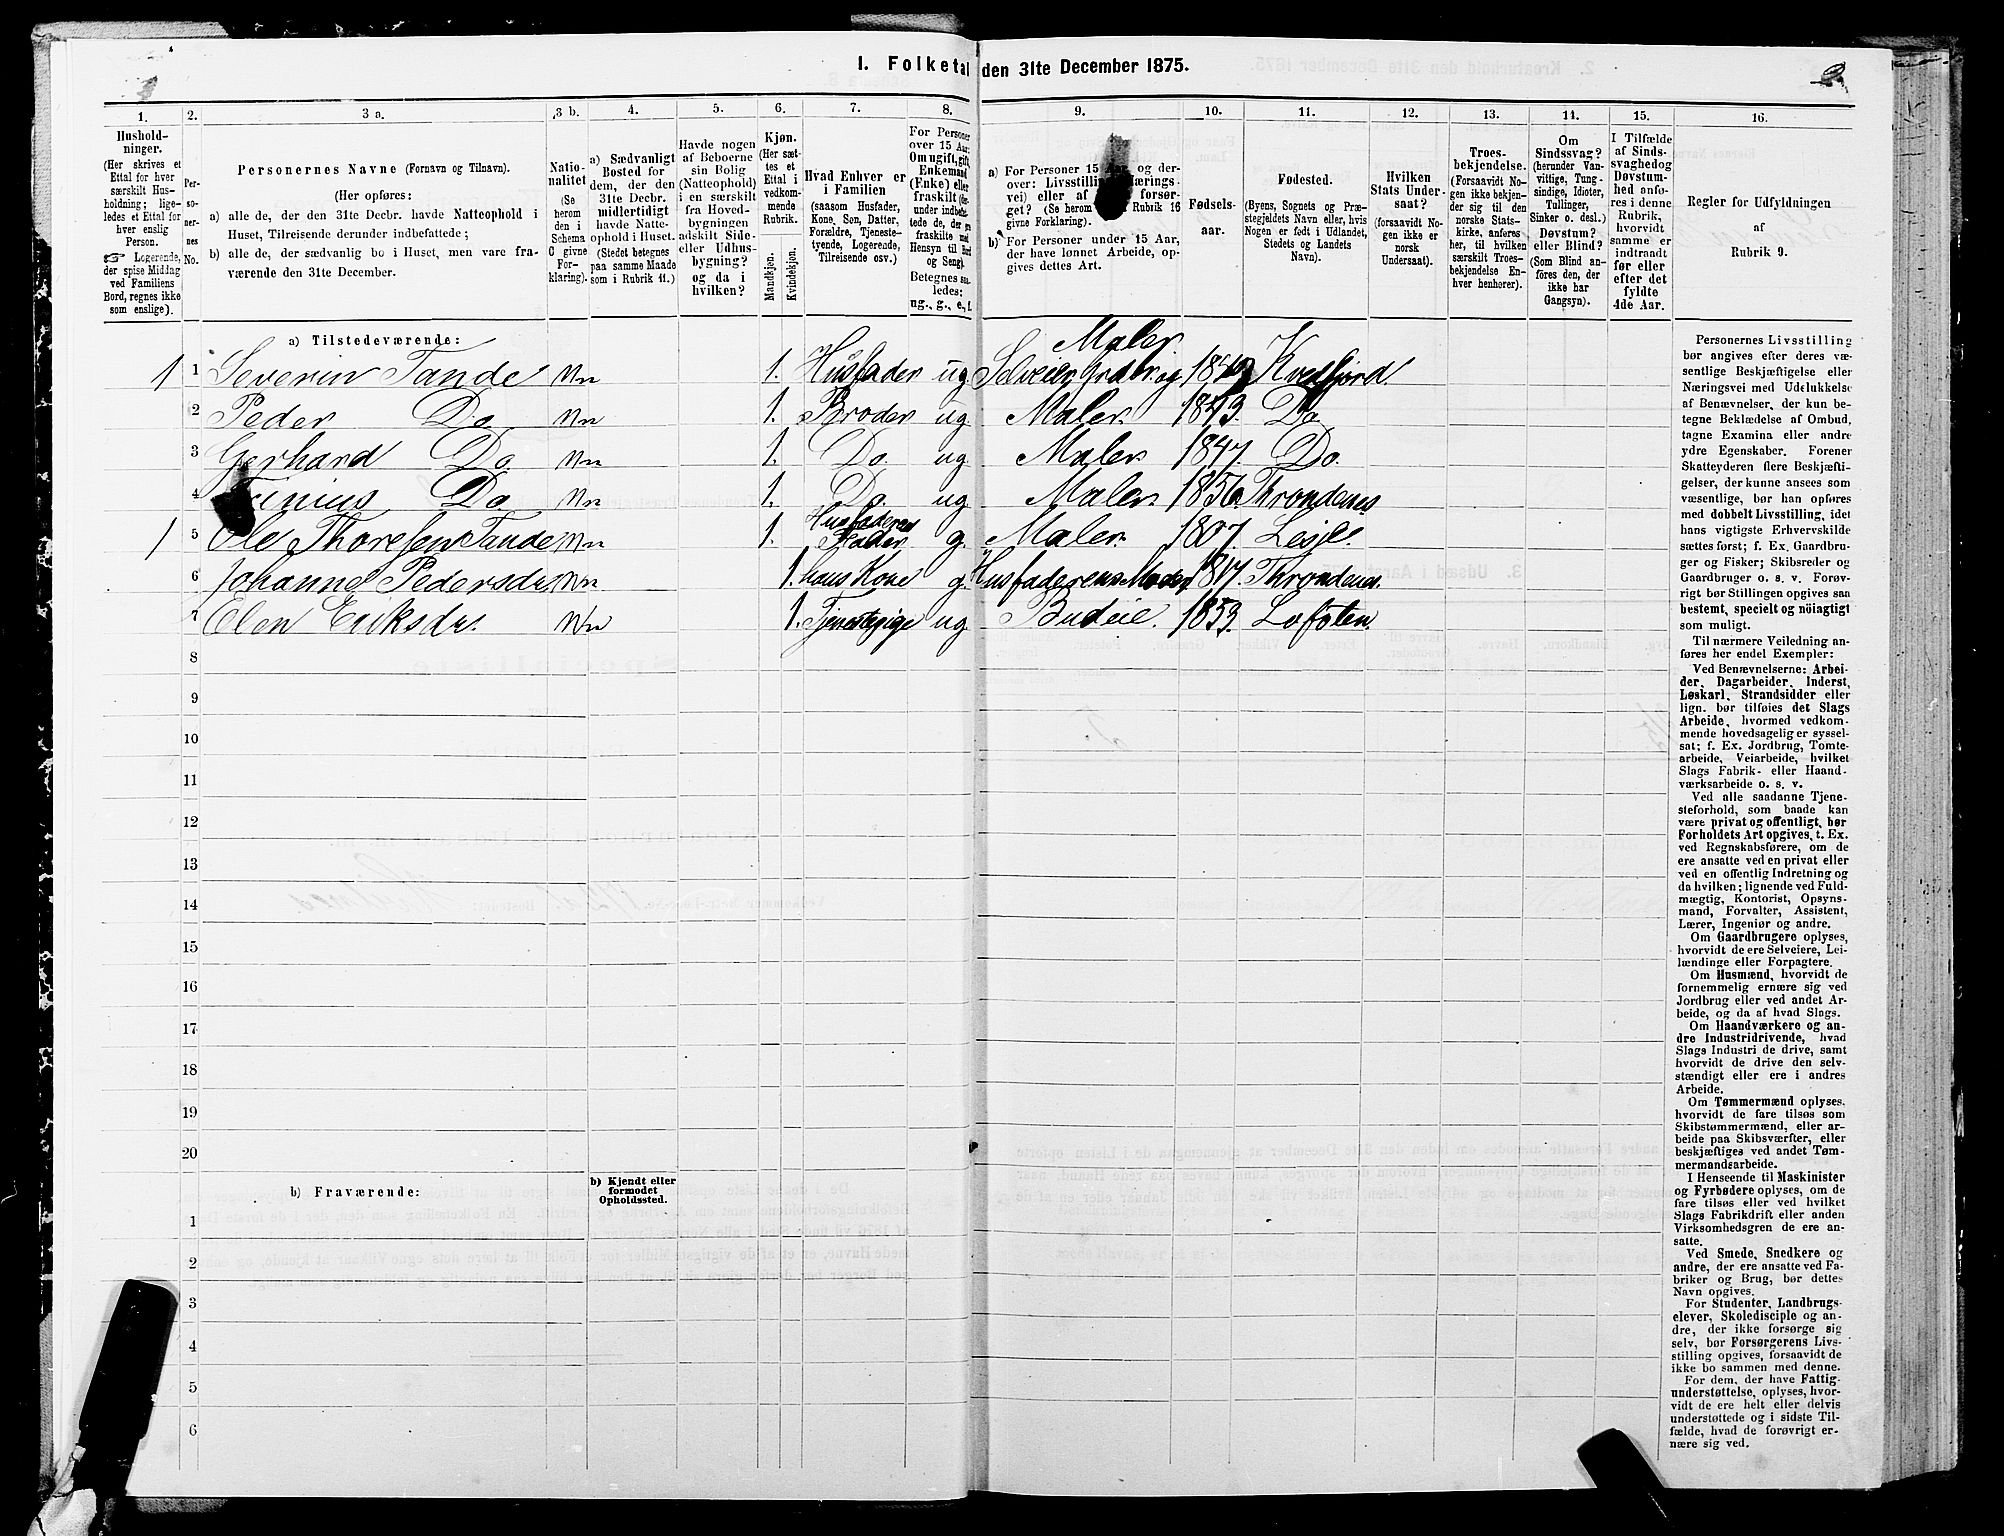 1. Folketal den 31te December 1875.
1. 2. 3 a. 3 b. 4. 5. 6. 7. 8. 9. 10. 11. 12. 13. 14. 15. 16.
Hushold-
ninger.
(Her skrives et
Ettal for hver
særskilt Hus-
holdning; lige-
ledes et Ettal for
hver enslig
Person.
☞ Logerende,
der spise Middag
ved Familiens
Bord, regnes ikke
som enslige).
Per-
so-
ner-
nes
No.
Personernes Navne (Fornavn og Tilnavn).
(Her opføres:
a) alle de, der den 31te Decbr. havde Natteophold i
Huset, Tilreisende derunder indbefattede;
b) alle de, der sædvanlig bo i Huset, men vare fra-
værende den 31te December.
Natio-
nalitet
(Se
herom
den i
Schema
C givne
For-
klaring).
a) Sædvanligt
Bosted for
dem, der den
31te Decbr.
midlertidigt
havde Natte-
ophold i Huset.
(Stedet betegnes
paa samme Maade
som i Rubrik 11.)
Havde nogen
af Beboerne
sin Bolig
(Natteophold)
i en særskilt
fra Hoved-
bygningen
adskilt Side-
eller Udhus-
bygning?
og da i
hvilken?
Kjøn.
(Her sæt-
tes et
Ettal i
vedkom-
mende
Rubrik.
Mandkjøn.
Kvindekjøn.
Hvad Enhver er
i Familien
(saasom Husfader,
Kone, Søn, Datter,
Forældre, Tjeneste-
tyende, Logerende,
Tilreisende osv.).
For Personer
over 15 Aar:
Om ugift, gift,
Enkemand
(Enke) eller
fraskilt
Betegnes saa-
ledes:
ug., g., e., f.
a) For Personer 15 Aar og der-
over: Livsstilling
b) For Personer under 15 Aar,
der have lønnet Arbeide, op-
gives dettes Art.
Fødsels-
aar.
Fødested.
(Byens, Sognets eller Præ-
stegjeldets Navn eller, hvis
Nogen er født i Udlandet,
Stedets og Landets
Navn).
Hvilken
Stats Under-
saat?
(forsaavidt No-
gen ikke er
norsk
Undersaat).
Troes-
bekjendelse.
(Forsaavidt No-
gen ikke bekjen-
der sig til den
norske Stats-
kirke, anføres
her, til hvilken
særskilt Troes-
bekjendelse En-
hver henhører).
Om
Sindssvag?
(herunder Van-
vittige, Tung-
sindige, Idioter,
Tullinger,
Sinker o. desl.)
Døvstum?
eller Blind?
(Som Blind an-
føres den, der
ikke har
Gangsyn).
I Tilfælde
af Sinds-
svaghed og
Døvstum-
hed anfø-
res i denne
Rubrik,
hvorvidt
samme er
indtraadt
før eller
efter det
fyldte
4de Aar.
Regler for Udfyldningen
af
Rubrik 9.
a) Tilstedeværende:
Maler
1 1 Severin Tande Nn 1. Husfader ug. Selveier, Grdbr. og 184 Kvedfjord.
2 Peder Do Nn 1. Broder ug. Maler. 1843. Do
3 Gerhard Do. Nn 1. Do. ug. Maler. 1847. Do.
4 Do. Nn 1. Do. ug. Maler. 1856. Throndenes
1 5 Ole Thoresen Tande Nn 1. Husfaderens Fader g. Maler. 1807. Lesje.
6 Johanne Pedersdtr. Nn 1. hans Kone g. Husfaderens Moder 1817. Throndenes.
7 Elen Eriksdtr. Nn 1. Tjenestepige ug. Budeie. 1853. Lofoten.
8
9
10
11
12
13
14
15
16
17
18
19
20
b) Fraværende:
b) Kjendt eller
formodet
Opholdssted.
1
2
3
4
5
6
Personernes Livsstilling
bør angives efter deres væ-
sentlige Beskjæftigelse eller
Næringsvei med Udelukkelse
af Benævnelser, der kun be-
tegne Beklædelse af Ombud,
tagne Examina eller andre
ydre Egenskaber. Forener
Skatteyderen flere Beskjæfti-
gelser, der kunne ansees som
væsentlige, bør han opføres
med dobbelt Livsstilling, idet
hans vigtigste Erhvervskilde
sættes først; f. Ex. Gaardbru-
ger og Fisker; Skibsreder og
Gaardbruger o. s. v. Forøv-
rigt bør Stillingen opgives saa
bestemt, specielt og nøiagtigt
som muligt.
Til nærmere Veiledning an-
føres her endel Exempler:
Ved Benævnelserne: Arbei-
der, Dagarbeider, Inderst,
Løskarl, Strandsidder eller
lign. bør tilføies det Slags
Arbeide, hvormed vedkom-
mende hovedsagelig er syssel-
sat; f. Ex. Jordbrug, Tomte-
arbeide, Veiarbeide, hvilket
Slags Fabrik- eller Haand-
værksarbeide o. s. v.
Ved alle saadanne Tjene-
steforhold, som baade kan
være privat og offentligt, bør
Forholdets Art opgives, t. Ex.
ved Regnskabsførere, om de
ere ansatte ved en privat eller
ved en offentlig Indretning og
da hvilken; lignende ved Fuld-
mægtig, Kontorist, Opsyns-
mand, Forvalter, Assistent,
Lærer, Ingeniør og andre.
Om Gaardbrugere oplyses,
hvorvidt de ere Selveiere, Lei-
lændinge eller Forpagtere.
Om Husmænd, hvorvidt de
fornemmelig ernære sig ved
Jordbrug eller ved andet Ar-
beide, og da af hvad Slags.
Om Haandværkere og an-
dre Industridrivende, hvad
Slags Industri de drive, samt
hvorvidt de drive den selv-
stændigt eller ere i andres
Arbeide.
Om Tømmermænd oplyses,
hvorvidt de fare tilsøs som
Skibstømmermænd, eller ar-
beide paa Skibsværfter, eller
beskjæftiges ved andet Tøm-
mermandsarbeide.
I Henseende til Maskinister
og Fyrbødere oplyses, om de
fare tilsøs eller ved hvilket
Slags Fabrikdrift eller anden
Virksomhedsgren de ere an-
satte.
Ved Smede, Snedkere og
andre, der ere ansatte ved Fa-
briker og Brug, bør dettes
Navn opgives.
For Studenter, Landbrugs-
elever, Skoledisciple og an-
dre, der ikke forsørge sig
selv, bør Forsørgerens Livs-
stilling opgives, forsaavidt de
ikke bo sammen med denne.
For dem, der have Fattig-
understøttelse, oplyses, hvor-
vidt de ere helt eller delvis
understøttede og i sidste Til-
fælde, hvad de forøvrigt er-
nære sig ved.